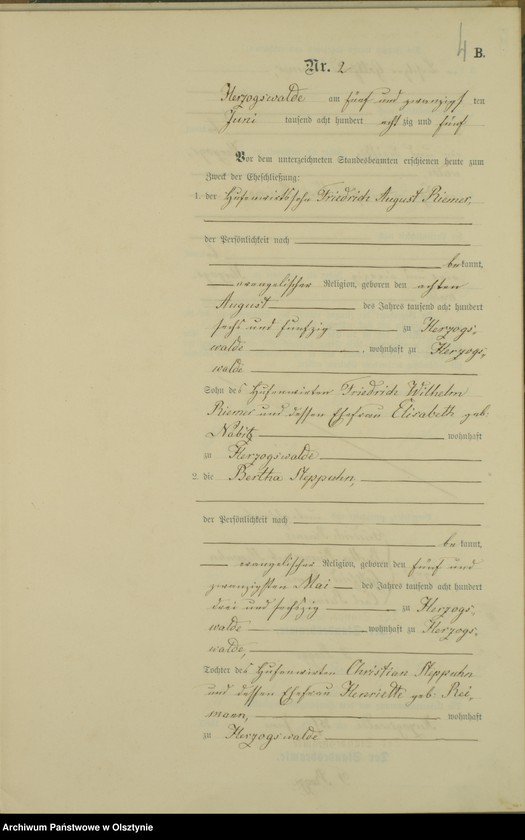 4 B.
Nr. 2
Herzogswalde am fünf und zwanzigsten
Juni tausend acht hundert achtzig und fünf
Vor dem unterzeichneten Standesbeamten erschienen heute zum
Zweck der Eheschließung:
1. der Hufenwirthssohn Friedrich August Riemer,
der Persönlichkeit nach
bekannt,
evangelischer Religion, geboren den achten
August des Jahres tausend acht hundert
sechs und fünfzig zu Herzogs-
walde, wohnhaft zu Herzogs-
walde
Sohn des Hufenwirten Friedrich Wilhelm
Riemer und dessen Ehefrau Elisabeth geb.
Nabitz wohnhaft
zu Herzogswalde
2. die Bertha Steppuhn,
der Persönlichkeit nach
bekannt,
evangelischer Religion, geboren den fünf und
zwanzigsten Mai des Jahres tausend acht hundert
drei und sechszig zu Herzogs-
walde wohnhaft zu Herzogs-
walde,
Tochter des Hufenwirten Christian Steppuhn
und dessen Ehefrau Henriette geb. Rei-
mann, wohnhaft
zu Herzogswalde
Archiwum Państwowe w Olsztynie